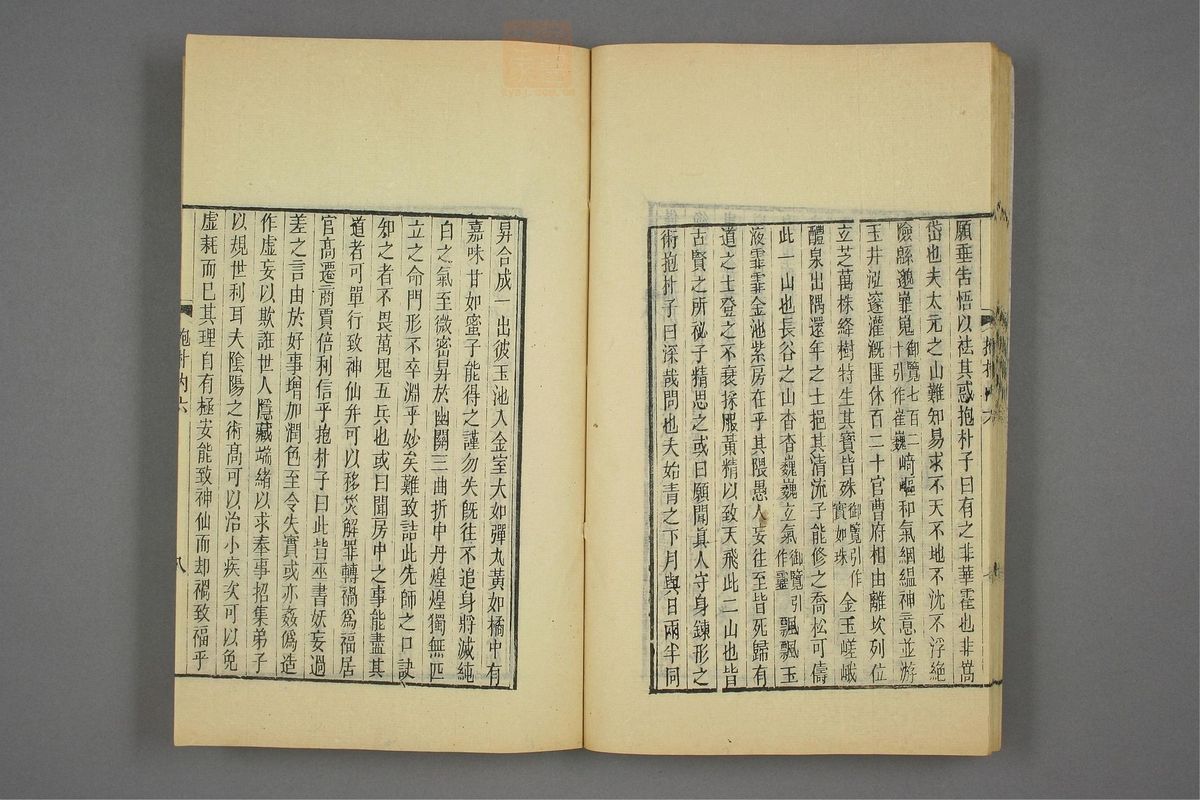 願垂告悟以祛其惑抱朴子曰有之非華霍也非嵩
岱也夫太元之山難知易求不天不地不沈不浮絶
險緜邈嶵嵬御覽七百二十引作崔巍崎嶇和氣絪縕神意並游
玉井泓邃灌溉匪休百二十官曹府相由離坎列位
立芝萬株絳樹特生其寶皆殊御覽引作實如珠金玉嵯峨
醴泉出隅還年之士挹其清流子能修之喬松可儔
此一山也長谷之山杳杳巍巍立氣御覽引作靈飄飄玉
液霏霏金池紫房在乎其隈愚人妄往至皆死歸有
道之士登之不衰採服黃精以致天飛此二山也皆
古賢之所秘子精思之或曰願聞眞人守身鍊形之
術抱朴子曰深哉問也夫始青之下月與日兩半同
昇合成一出彼玉池入金室大如彈丸黃如橘中有
嘉味甘如蜜子能得之謹勿失旣往不追身將滅純
白之氣至微密昇於幽關三曲折中丹煌煌獨無匹
立之命門形不卒淵乎妙矣難致詰此先師之口訣
知之者不畏萬鬼五兵也或曰聞房中之事能盡其
道者可單行致神仙幷可以移災解罪轉禍爲福居
官高遷商賈倍利信乎抱朴子曰此皆巫書妖妄過
差之言由於好事增加潤色至令失實或亦姦僞造
作虛妄以欺誑世人隱藏端緒以求奉事招集弟子
以規世利耳夫陰陽之術高可以治小疾次可以免
虛耗而已其理自有極安能致神仙而却禍致福乎
抱朴內六
八